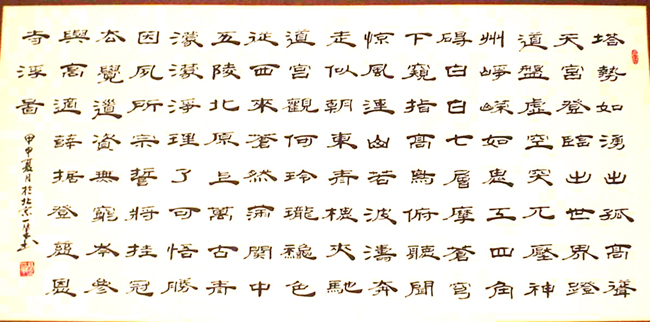 塔勢如湧出孤高聳
天宮登臨出世界磴
道盤虛空突兀壓神
州崢嶸如鬼工四角
碍白日七層摩蒼穹
下窺指高鳥俯聽聞
惊風連山若波濤奔
走似朝東青槐夾馳
道宮觀何玲瓏秋色
從西來蒼然滿關中
五陵北原上萬古青
濛濛淨理了可悟勝
因夙所宗誓將挂冠
去覺道資無窮岑參
與高適薛據登慈恩
寺浮啚
甲申夏月於北京